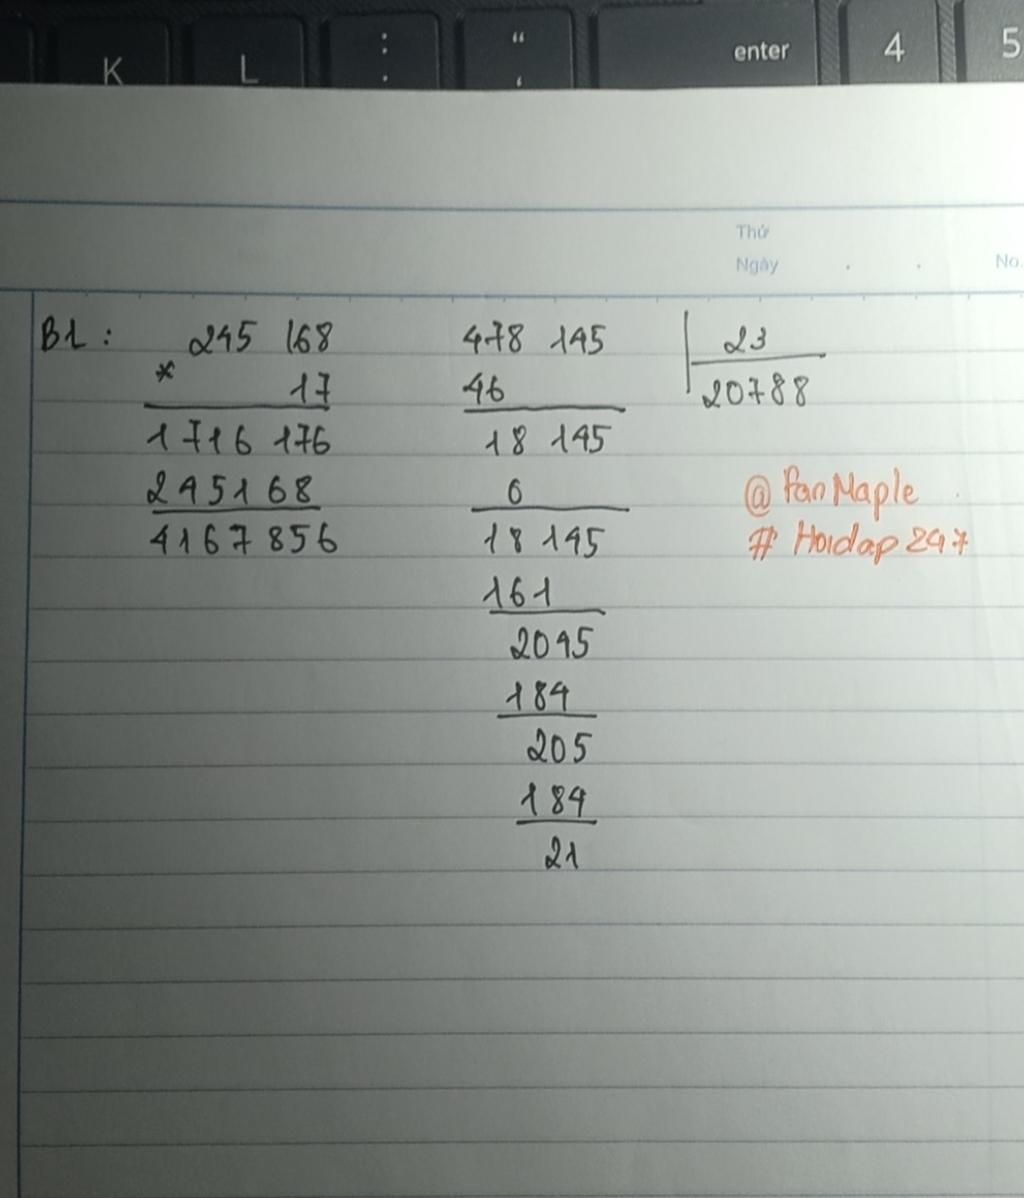 K L : ; “ ‘ enter 4 5
Thứ
Ngày . . No.
B1 : 245 168 478 145 23
* 17 46 20788
1 716 176 18 145
245168 0 @ Pan Maple
4167 856 18 145 # Hoidap 247
161
2045
184
205
184
21